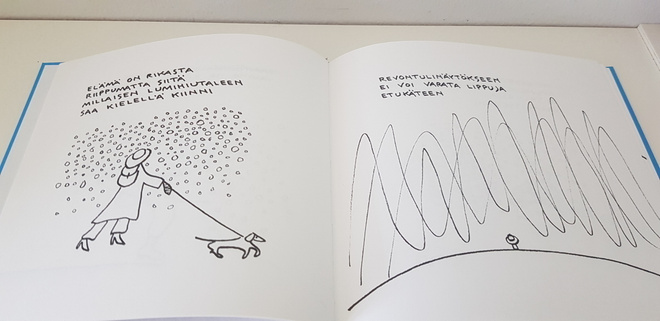 ELÄMÄ ON RIKASTA
RIIPPUMATTA SIITÄ
MILLAISEN LUMIHIUTALEEN
SAA KIELELLÄ KIINNI
REVONTULINÄYTÖKSEEN
EI VOI VARATA LIPPUJA
ETUKÄTEEN